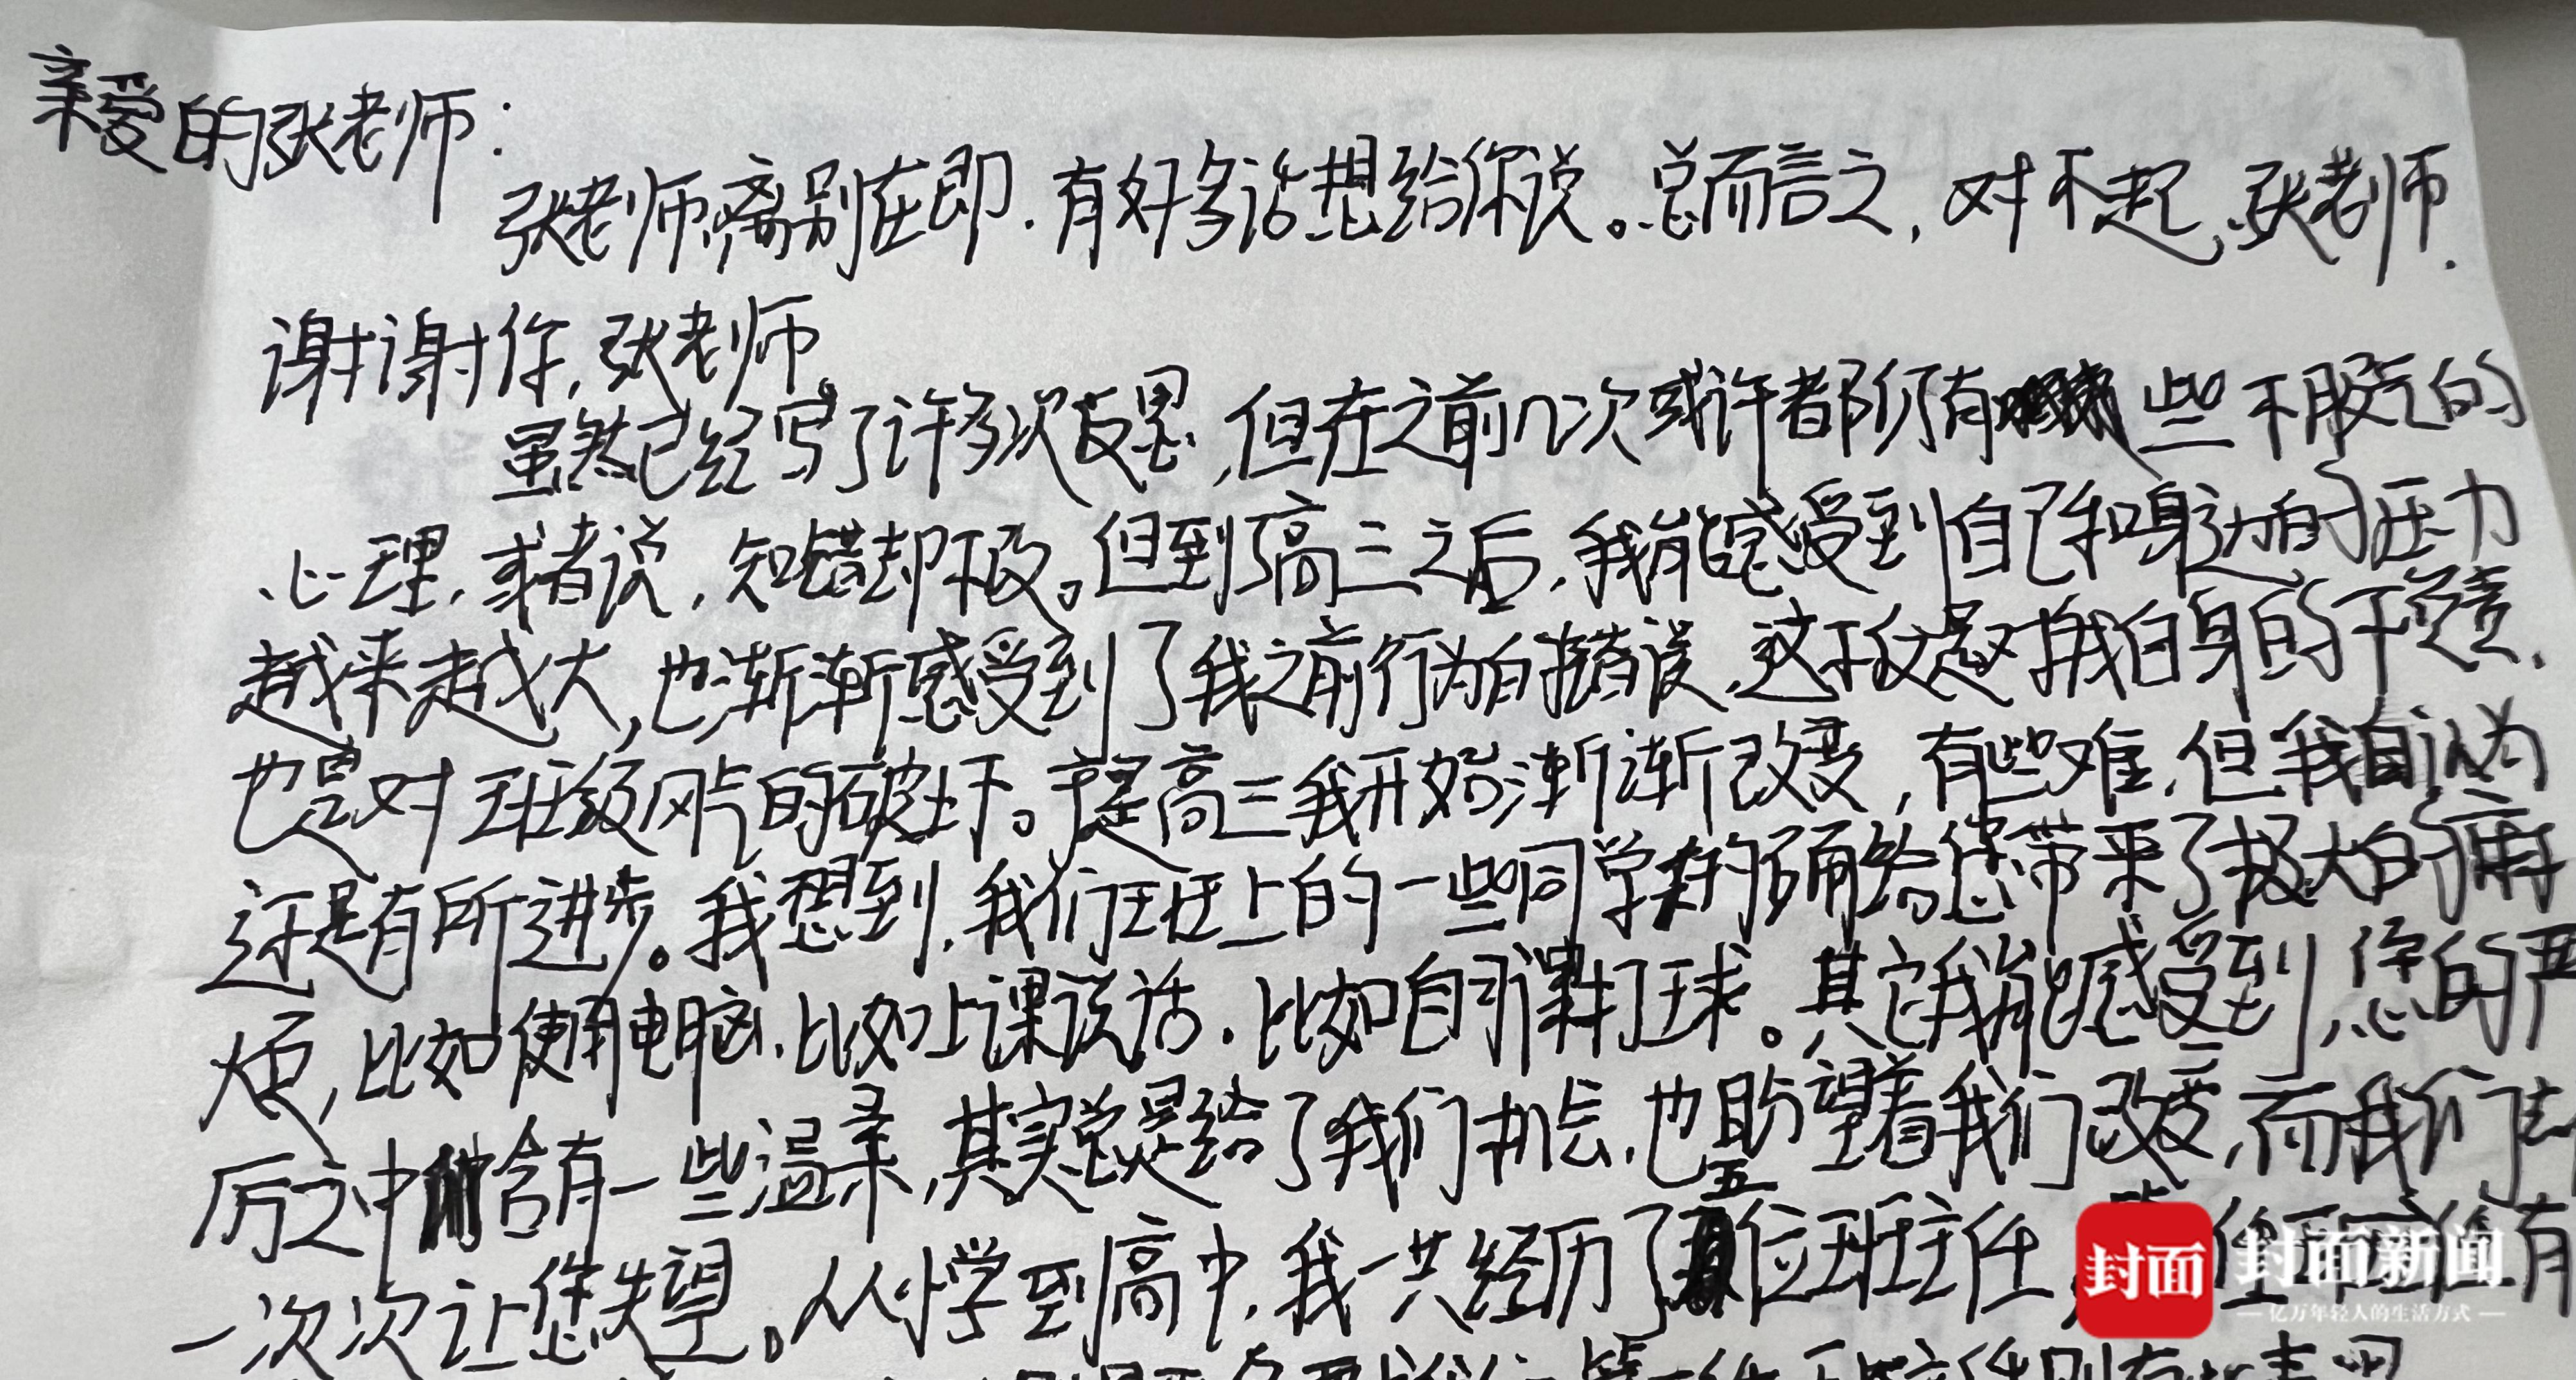 亲爱的张老师：
张老师，离别在即，有好多话想给你说。总而言之，对不起，张老师，
谢谢你，张老师。
虽然已经写了许多次反思，但在之前几次或许都仍有些不服气的
心理，或者说，知错却不改。但到高三之后，我能感受到自己和身边的压力
越来越大，也渐渐感受到了我之前行为的错误，这不仅是对我自身的不负责，
也是对班级风气的破坏。高三我开始渐渐改变，有些难，但我自认为
还是有所进步。我想到，我们班上的一些同学的确给您带来了极大的麻
烦，比如使用电脑，比如上课说话，比如自习课打球。其它我能感受到，您的严
厉之中含有一些温柔，其实总是给了我们机会，也盼望着我们改变，而我们却
一次次让您失望。从小学到高中，我一共经历了五位班主任，
封面
封面新闻
亿万年轻人的生活方式